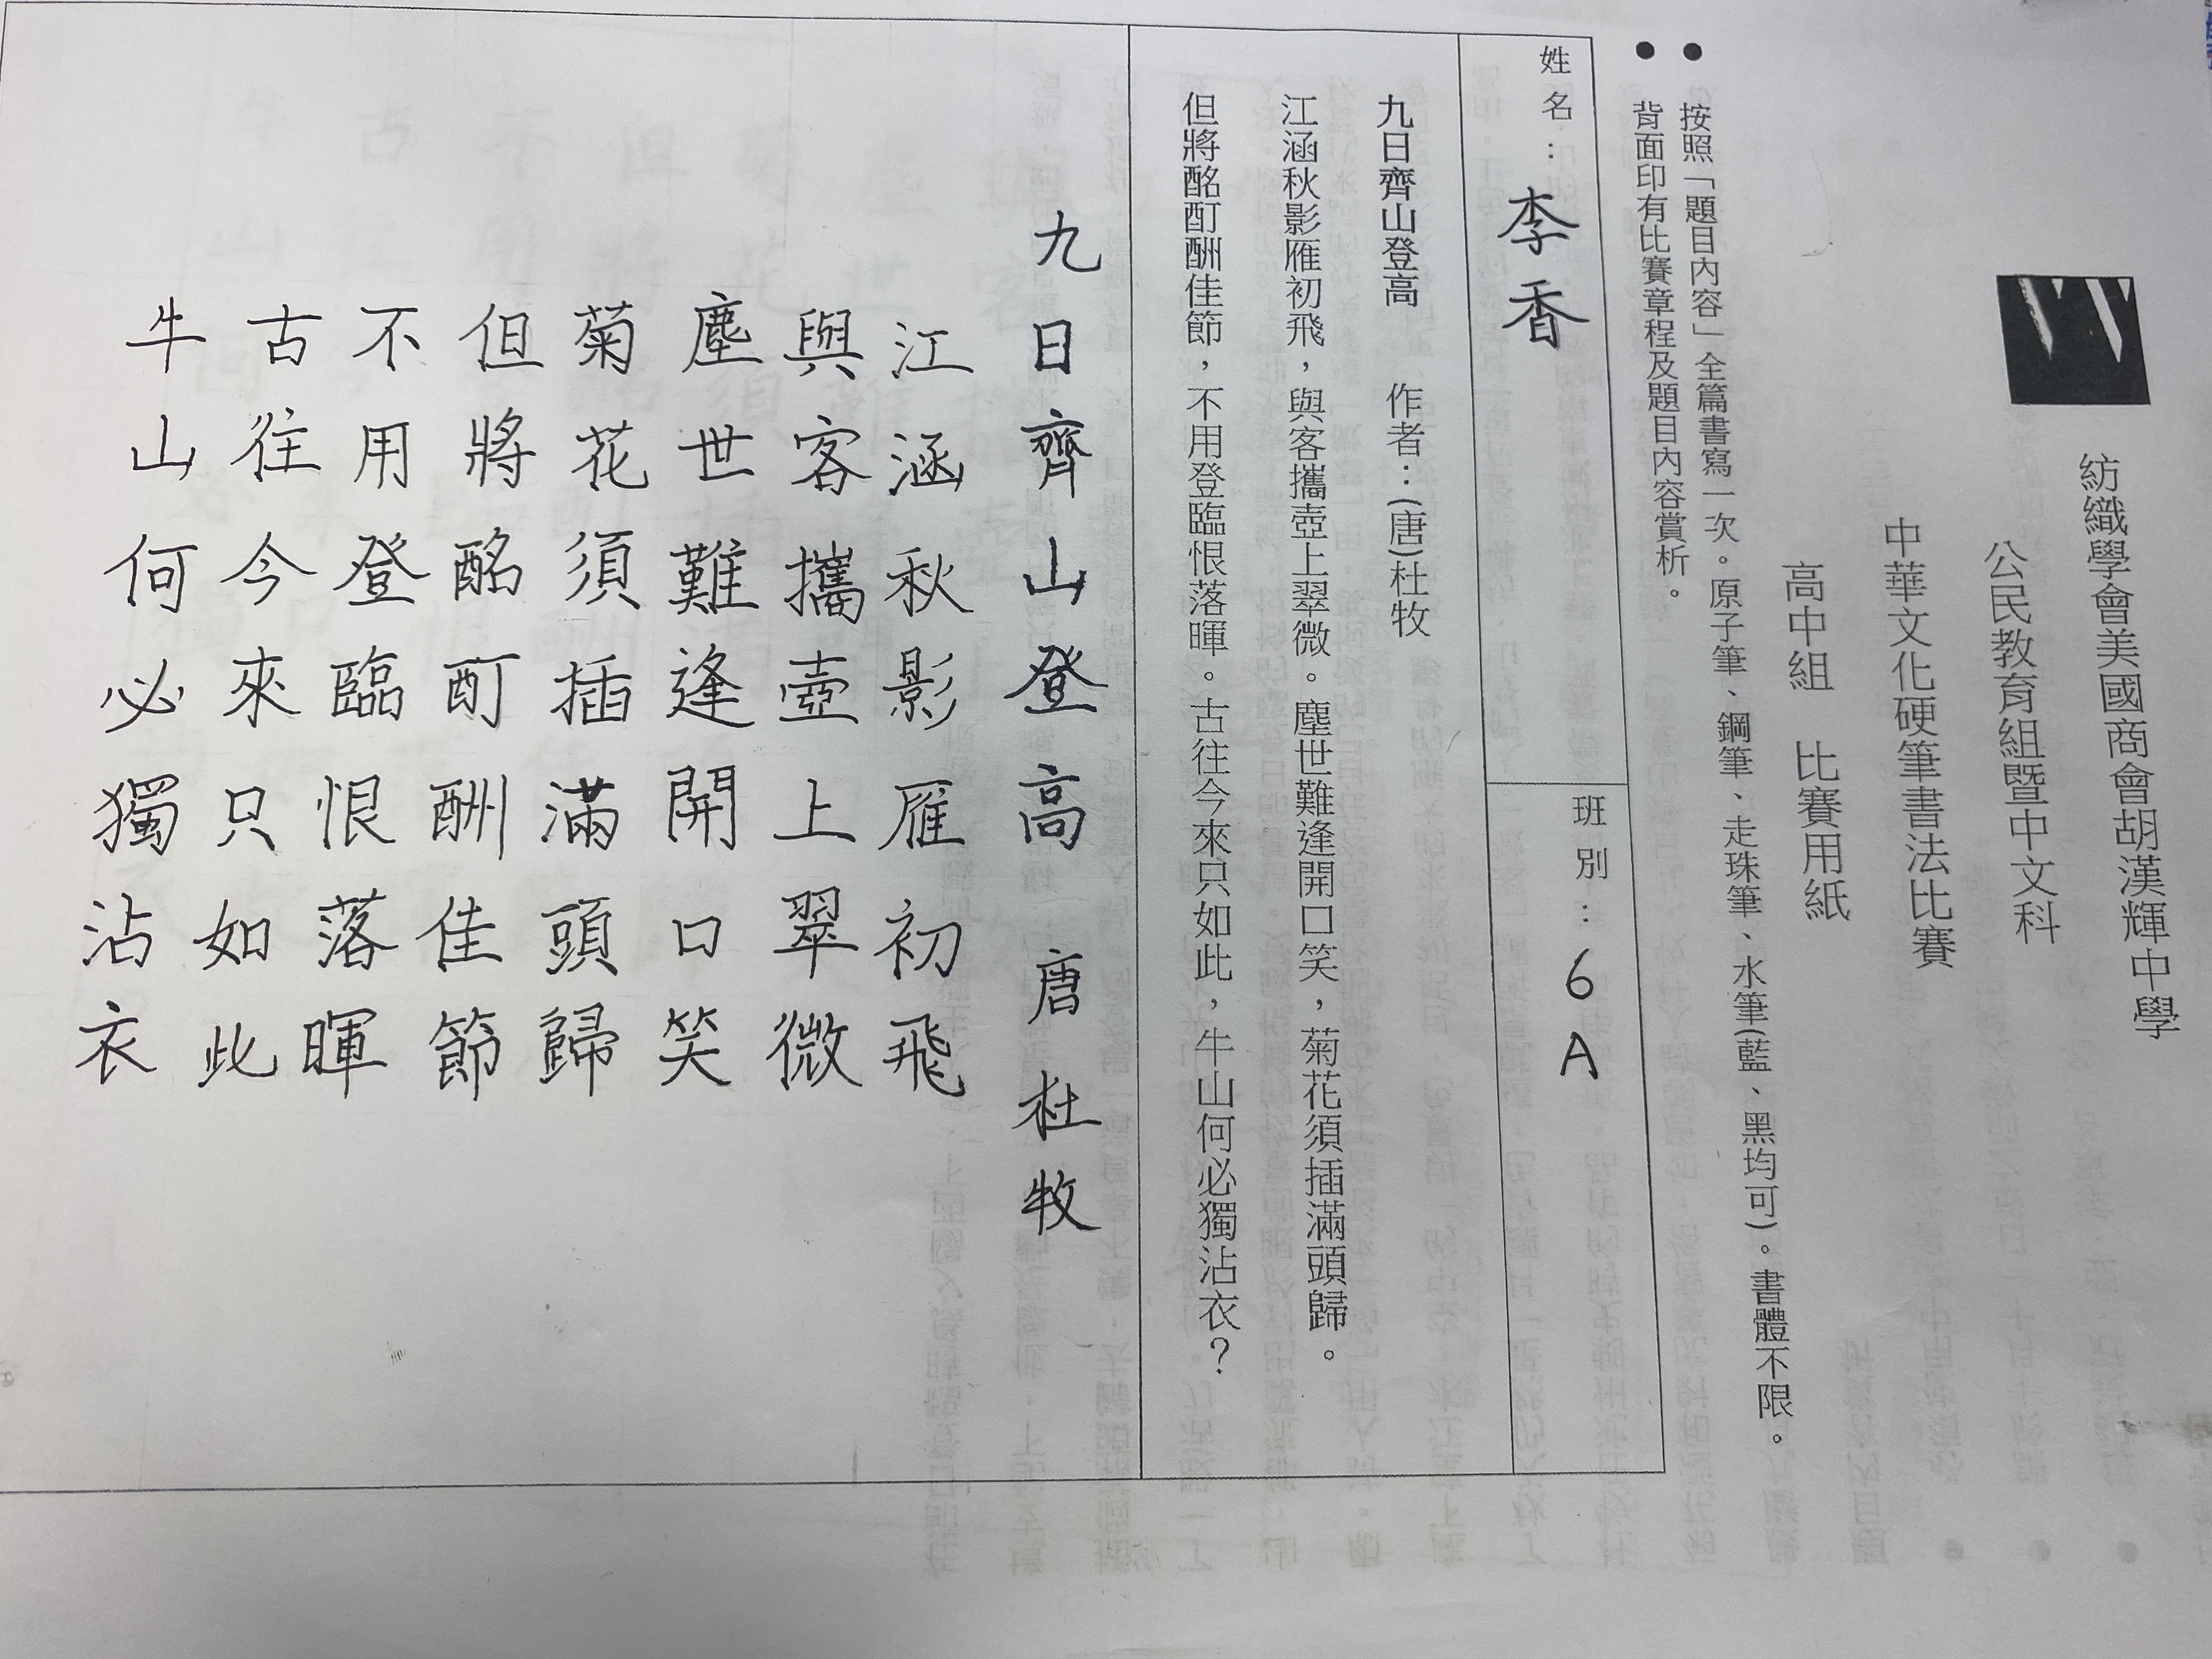 紡織學會美國商會胡漢輝中學
公民教育組暨中文科
中華文化硬筆書法比賽
高中組　比賽用紙
● 按照「題目內容」全篇書寫一次。原子筆、鋼筆、走珠筆、水筆(藍、黑均可)。書體不限。
● 背面印有比賽章程及題目內容賞析。
姓名：李香
班別：6A
九日齊山登高　作者：(唐)杜牧
江涵秋影雁初飛，與客攜壺上翠微。塵世難逢開口笑，菊花須插滿頭歸。
但將酩酊酬佳節，不用登臨恨落暉。古往今來只如此，牛山何必獨沾衣？
九日齊山登高 唐杜牧
江涵秋影雁初飛
與客攜壺上翠微
塵世難逢開口笑
菊花須插滿頭歸
但將酩酊酬佳節
不用登臨恨落暉
古往今來只如此
牛山何必獨沾衣